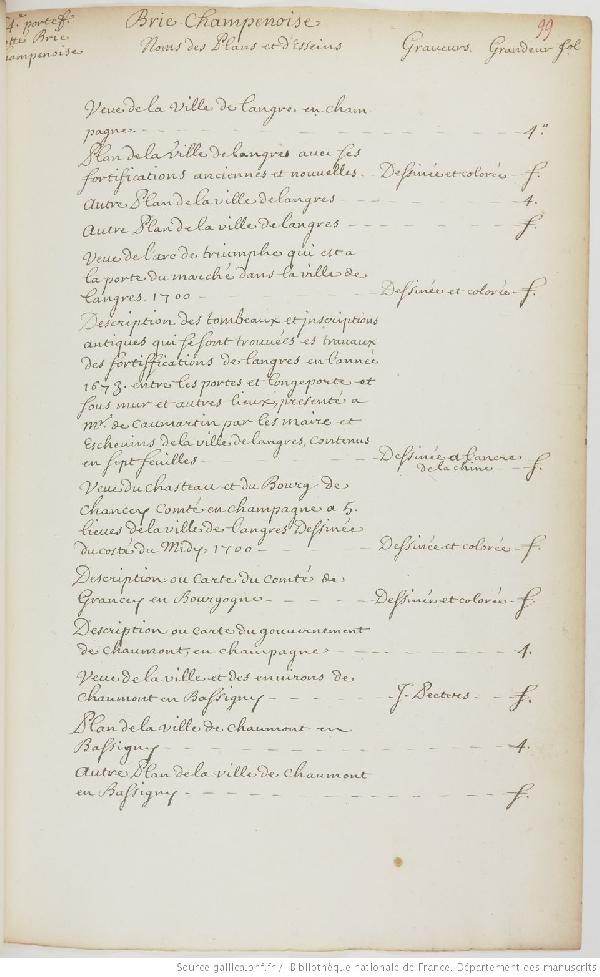 4.e portef.
Brie
Champenoise
Brie Champenoise
99
Noms des Plans et d'Esseins Graveurs. Grandeur fol
Veue de la Ville de Langre en Cham
pagne 4.o
Plan de la Ville de Langres avec ses
fortifications anciennes et nouvelles Dessinée et colorée f.
Autre Plan de la ville de Langres 4.
Autre Plan de la ville de Langres f.
Veue de l'arc de triumphe qui est a
la porte du marché dans la ville de
Langres. 1700 Dessinée et colorée f.
Description des tombeaux et inscriptions
antiques qui se sont trouvées es travaux
des fortiffications de Langres en l'année
1673. entre les portes et Longeporte et
sous mur et autres lieux, presenté a
Mr. de Caumartin par les Maire et
Eschevins de la ville de Langres, Contenus
en sept feuilles Dessinée a l'ancre
de la chine f.
Veue du Chasteau et du Bourg de
Chancey Comté en champagne a 5.
lieues de la ville de Langres Dessinée
du costé du Midy 1700 Dessinée et colorée f.
Description ou Carte du Comté de
Grancey en Bourgogne Dessinée et colorée f.
Description ou carte du gouvernement
de Chaumont, en champagne 4.
Veue de la ville et des environs de
Chaumont en Bassigny J. Peeters f.
Plan de la ville de Chaumont en
Bassigny 4.
Autre Plan de la ville de Chaumont
en Bassigny f.
Source gallica.bnf.fr / Bibliothèque nationale de France. Département des manuscrits